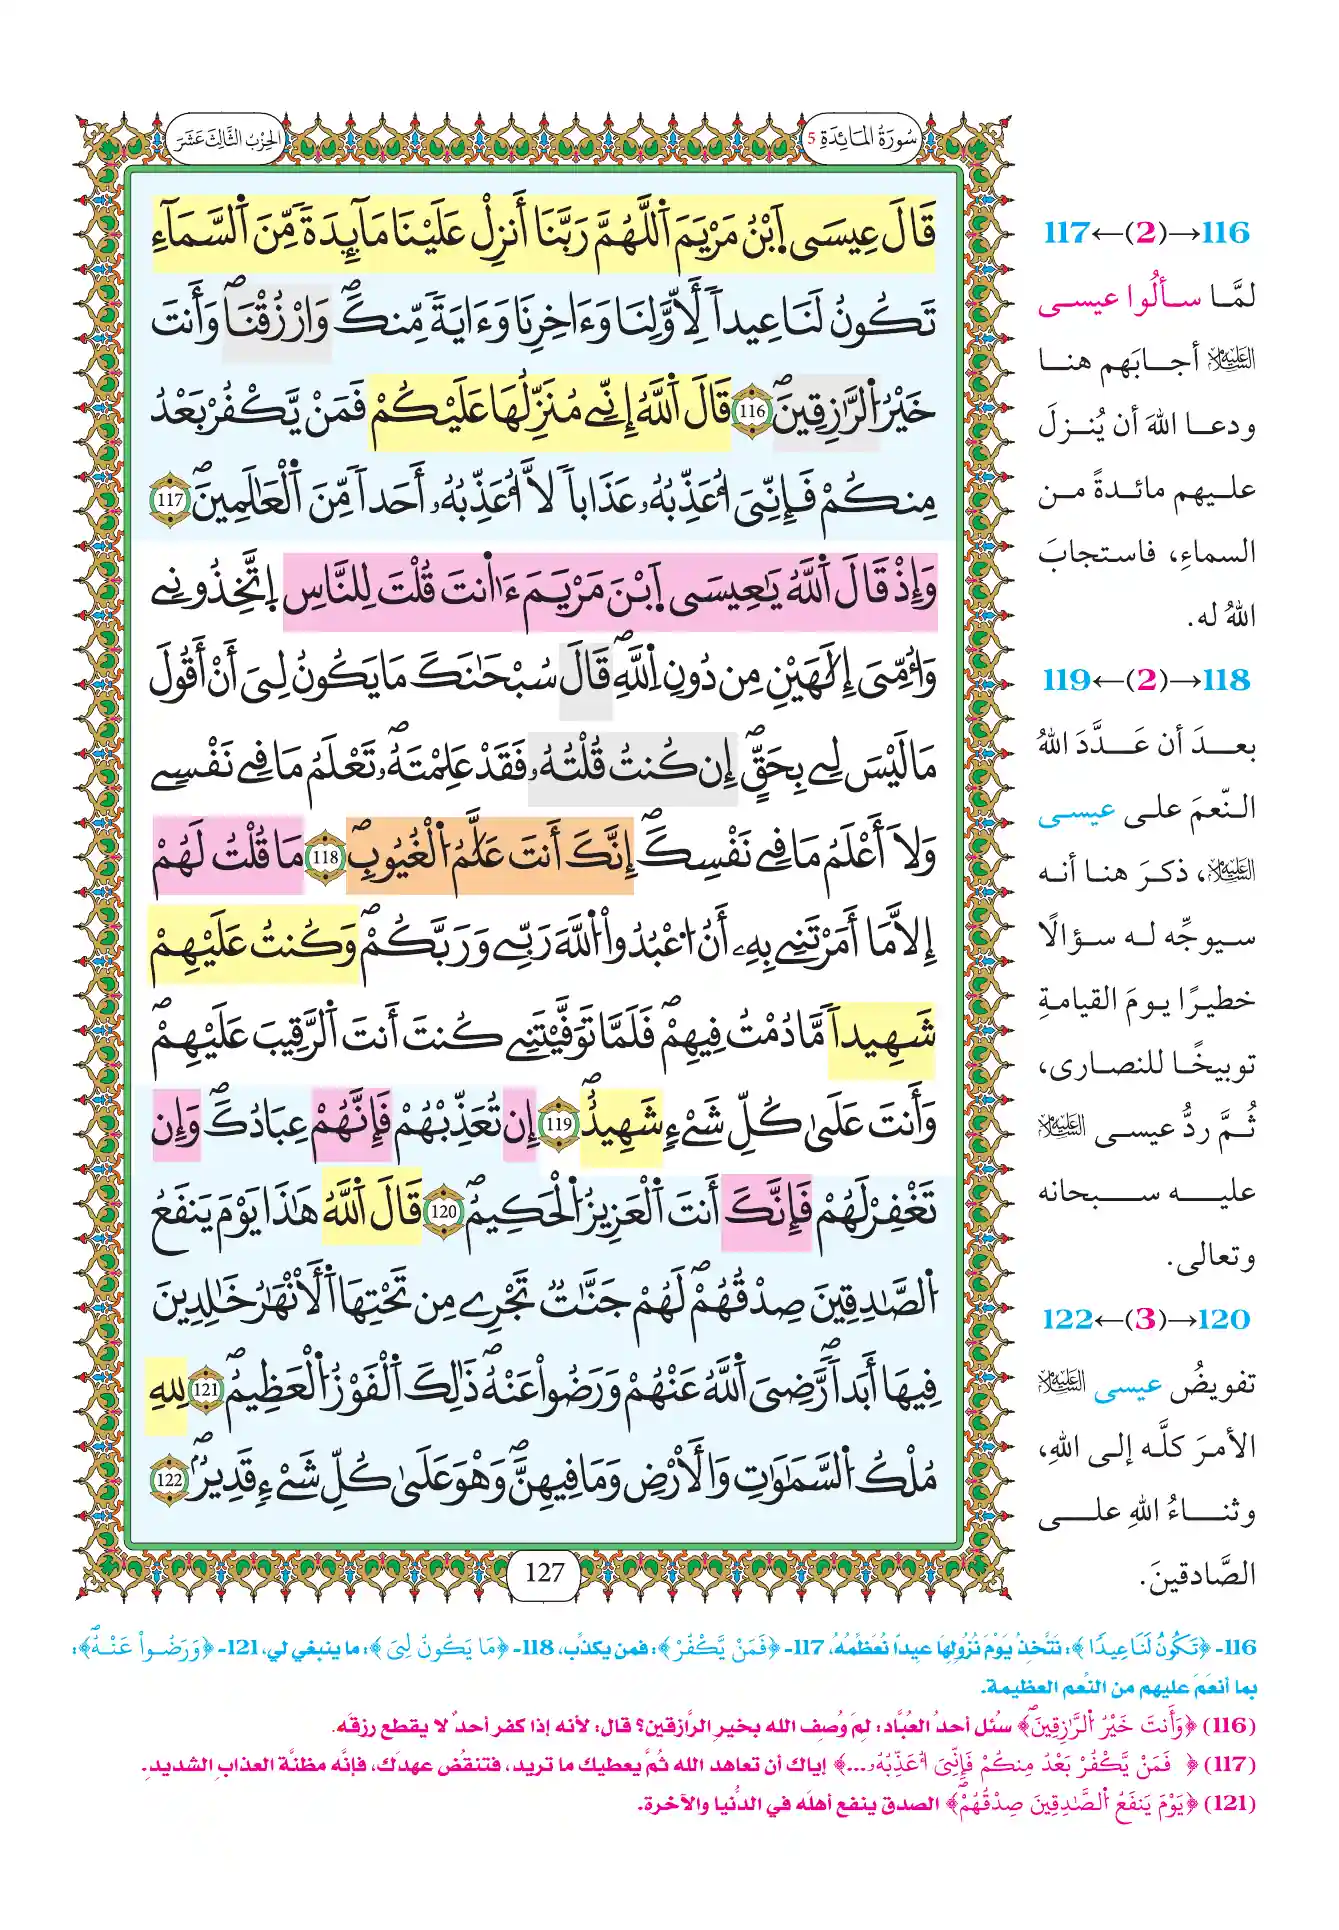 سُورَةُ المَائِدَةِ 5
الحِزْبُ الثَّالِثَ عَشَرَ
قَالَ عِيسَى اَبْنُ مَرْيَمَ اَللَّهُمَّ رَبَّنَا أَنزِلْ عَلَيْنَا مَآئِدَةً مِّنَ اَلسَّمَآءِ
تَكُونُ لَنَا عِيداً لِّأَوَّلِنَا وَءَاخِرِنَا وَءَايَةً مِّنكَۖ وَارْزُقْنَاۖ وَأَنتَ
خَيْرُ اُلرَّٰزِقِينَۖ 116 قَالَ اَللَّهُ إِنِّے مُنَزِّلُهَا عَلَيْكُمْ فَمَنْ يَّكْفُرْ بَعْدُ
مِنكُمْ فَإِنِّيَ أُعَذِّبُهُۥ عَذَاباً لَّا أُعَذِّبُهُۥ أَحَداً مِّنَ اَلْعَٰلَمِينَۖ 117
وَإِذْ قَالَ اَللَّهُ يَٰعِيسَى اَبْنَ مَرْيَمَ ءَآنتَ قُلْتَ لِلنَّاسِ اِتَّخِذُونِے
وَأُمِّيَ إِلَٰهَيْنِ مِن دُونِ اِللَّهِۖ قَالَ سُبْحَٰنَكَ مَا يَكُونُ لِيَ أَنْ أَقُولَ
مَا لَيْسَ لِے بِحَقٍّۖ إِن كُنتُ قُلْتُهُۥ فَقَدْ عَلِمْتَهُۥۖ تَعْلَمُ مَا فِے نَفْسِے
وَلَا أَعْلَمُ مَا فِے نَفْسِكَۖ إِنَّكَ أَنتَ عَلَّٰمُ اُلْغُيُوبِۖ 118 مَا قُلْتُ لَهُمْ
إِلَّا مَا أَمَرْتَنِے بِهِۦ أَنُ اُعْبُدُواْ اُللَّهَ رَبِّے وَرَبَّكُمْۖ وَكُنتُ عَلَيْهِمْ
شَهِيداً مَّا دُمْتُ فِيهِمْۖ فَلَمَّا تَوَفَّيْتَنِے كُنتَ أَنتَ اَلرَّقِيبَ عَلَيْهِمْۖ
وَأَنتَ عَلَىٰ كُلِّ شَےْءٍ شَهِيدٌۖ 119 إِن تُعَذِّبْهُمْ فَإِنَّهُمْ عِبَادُكَۖ وَإِن
تَغْفِرْ لَهُمْ فَإِنَّكَ أَنتَ اَلْعَزِيزُ اُلْحَكِيمُۖ 120 قَالَ اَللَّهُ هَٰذَا يَوْمَ يَنفَعُ
اُلصَّٰدِقِينَ صِدْقُهُمْۖ لَهُمْ جَنَّٰتٌ تَجْرِے مِن تَحْتِهَا اَلْأَنْهَٰرُ خَٰلِدِينَ
فِيهَا أَبَداًۖ رَّضِيَ اَللَّهُ عَنْهُمْ وَرَضُواْ عَنْهُۖ ذَٰلِكَ اَلْفَوْزُ اُلْعَظِيمُۖ 121 لِلهِ
مُلْكُ اُلسَّمَٰوَٰتِ وَالْأَرْضِ وَمَا فِيهِنَّۖ وَهُوَ عَلَىٰ كُلِّ شَےْءٍ قَدِيرٌۖ 122
127
116→(2)←117
لمَّا سألُوا عيسى
عليه السلام أجابَهم هنا
ودعا اللهَ أن يُنزلَ
عليهم مائدةً من
السماءِ، فاستجابَ
اللهُ له.
118→(2)←119
بعدَ أن عَدَّدَ اللهُ
النّعمَ على عيسى
عليه السلام، ذكرَ هنا أنه
سيوجِّه له سؤالًا
خطيرًا يومَ القيامةِ
توبيخًا للنصارى،
ثُمَّ ردُّ عيسى عليه السلام
عليه سبحانه
وتعالى.
120→(3)←122
تفويضُ عيسى عليه السلام
الأمرَ كلَّه إلى اللهِ،
وثناءُ اللهِ على
الصَّادقينَ.
116- ﴿تَكُونُ لَنَا عِيدًا﴾: نَتَّخِذُ يَوْمَ نُزُولِهَا عِيداً نُعَظِّمُهُ، 117- ﴿فَمَنْ يَّكْفُرْ﴾: فمن يكذّب، 118- ﴿مَا يَكُونُ لِيَ﴾: ما ينبغي لي، 121- ﴿وَرَضُواْ عَنْهُۖ﴾:
بما أنعَمَ عليهم من النِّعم العظيمة.
(116) ﴿وَأَنتَ خَيْرُ اُلرَّٰزِقِينَۖ﴾ سُئل أحدُ العُبَّاد: لِمَ وُصِف الله بخير الرَّازقين؟ قال: لأنه إذا كفر أحدٌ لا يقطع رزقَه.
(117) ﴿فَمَنْ يَّكْفُرْ بَعْدُ مِنكُمْ فَإِنِّيَ أُعَذِّبُهُۥ...﴾ إياك أن تعاهد الله ثُمَّ يعطيك ما تريد، فتنقُض عهدَك، فإنَّه مظنَّة العذاب الشديد.
(121) ﴿يَوْمَ يَنفَعُ اُلصَّٰدِقِينَ صِدْقُهُمْۖ﴾ الصدق ينفع أهلَه في الدُّنيا والآخرة.